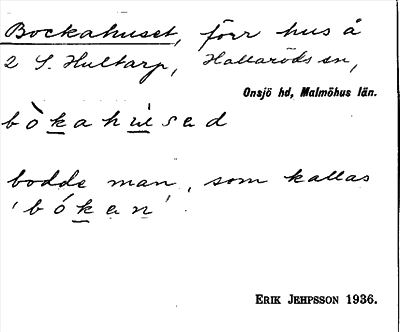 Bockahuset, förr hus å
2 S. Hultarp, Hallaröds sn,
Onsjö hd, Malmöhus län.
bòkahúsed
bodde man, som kallas
'bóken'.
ERIK JEHPSSON 1936.